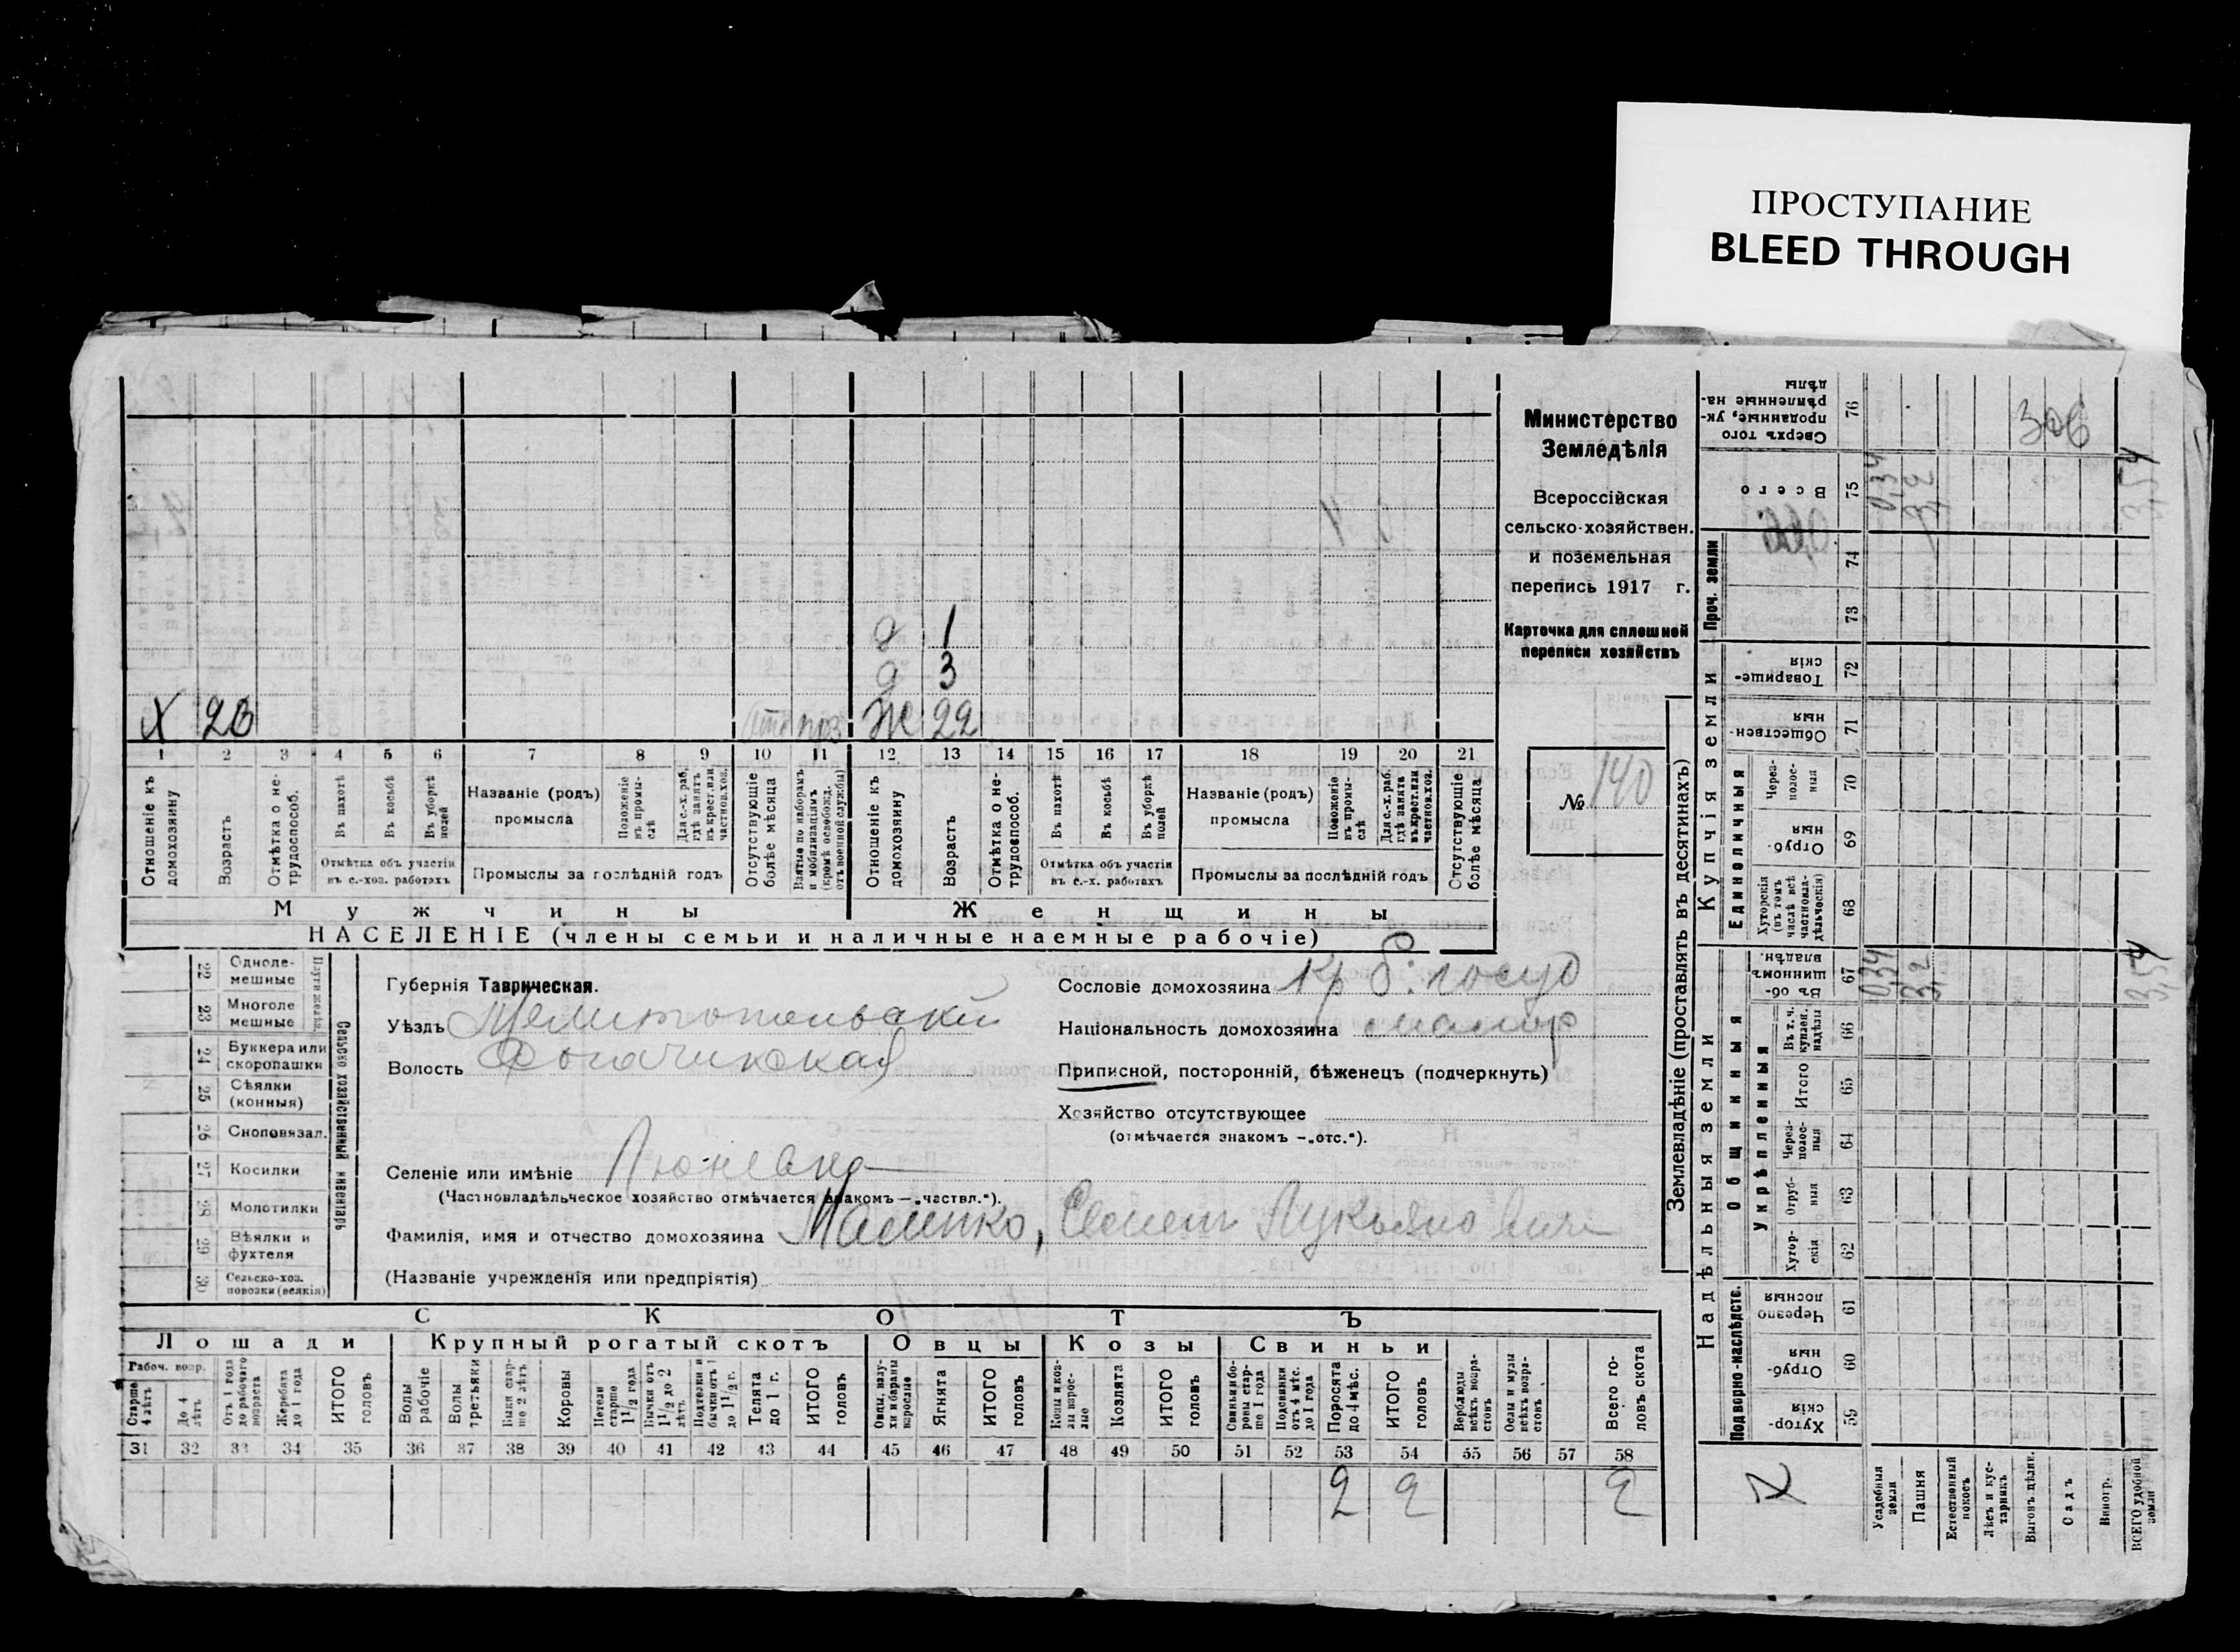 ПРОСТУПАНИЕ
BLEED THROUGH
д 1
д 3
Х Ж 22
1 2 3 4 5 6 7 8 9 10 11 12 13 14 15 16 17 18 19 20 21
Отношеніе къ домохозяину
Возрастъ
Отмѣтка о не-трудоспособ.
Въ пахотѣ
Въ косьбѣ
Въ уборкѣ полей
Отмѣтка объ участіи
въ с.-хоз. работахъ
Названіе (родъ)
промысла
Положеніе въ промы-слѣ
Для с.-х. раб. гдѣ занятъ въ крест. или частнов. хоз.
Промыслы за послѣдній годъ
Отсутствующіе болѣе мѣсяца
Взятые по наборамъ и мобилизаціямъ (кромѣ освобожд. отъ военной службы)
Отношеніе къ домохозяину
Возрастъ
Отмѣтка о не-трудоспособ.
Въ пахотѣ
Въ косьбѣ
Въ уборкѣ полей
Отмѣтка объ участіи
въ с.-х. работахъ
Названіе (родъ)
промысла
Положеніе въ промы-слѣ
Для с.-х. раб. гдѣ занята въ крест. или частнов. хоз.
Промыслы за послѣдній годъ
Отсутствующіе болѣе мѣсяца
Мужчины Женщины
НАСЕЛЕНІЕ (члены семьи и наличные наемные рабочіе)
Министерство
Земледѣлія
Всероссійская
сельско-хозяйствен.
и поземельная
перепись 1917 г.
Карточка для сплошной
переписи хозяйствъ
№ 140
22 Однолемешные
23 Многолемешные
24 Буккера или скоропашки
25 Сѣялки (конныя)
26 Сноповязал.
27 Косилки
28 Молотилки
29 Вѣялки и фухтеля
30 Сельско-хоз. повозки (всякія)
Сельско хозяйственный инвентарь
Губернія Таврическая.
Уѣздъ Мелитопольскій
Волость
Селеніе или имѣніе
(Частновладѣльческое хозяйство отмѣчается знакомъ —„частвл.“).
Фамилія, имя и отчество домохозяина Семенъ Лукьяновичъ
(Названіе учрежденія или предпріятія)
Сословіе домохозяина кр б. госуд
Національность домохозяина малор
Приписной, посторонній, бѣженецъ (подчеркнуть)
Хозяйство отсутствующее
(отмѣчается знакомъ —„отс.“).
СКОТЪ
Лошади Крупный рогатый скотъ Овцы Козы Свиньи
Рабоч. возр.
Старше 4 лѣтъ
До 4 лѣтъ
Отъ 1 года до рабочаго возраста
Жеребята до 1 года
ИТОГО головъ
Волы рабочіе
Волы третьяки
Быки старше 2 лѣтъ
Коровы
Нетели старше 1 1/2 года
Бычки отъ 1 1/2 до 2 лѣтъ
Подтелки и бычки отъ 1 до 1 1/2 г.
Телята до 1 г.
ИТОГО головъ
Овцы, валухи и бараны взрослые
Ягнята
ИТОГО головъ
Козы и козлы взрослые
Козлята
ИТОГО головъ
Свиньи и боровы старше 1 года
Подсвинки отъ 4 мѣс. до 1 года
Поросята до 4 мѣс.
ИТОГО головъ
Верблюды всѣхъ возрастовъ
Ослы и мулы всѣхъ возрастовъ
Всего головъ скота
31 32 33 34 35 36 37 38 39 40 41 42 43 44 45 46 47 48 49 50 51 52 53 54 55 56 57 58
2 2 2
Землевладѣніе (проставлять въ десятинахъ)
Надѣльныя земли Купчія земли Проч. земли
Подворно-наслѣдств. Общинныя Единоличныя
Укрѣпленныя
Хуторскія 59
Отрубныя 60
Черезполосныя 61
Хуторскія 62
Отрубныя 63
Черезполосныя 64
Итого 65
Въ т. ч. куплен. надѣлы 66
Въ общинномъ владѣн. 67
Хуторскія (въ томъ числѣ всѣ частновладѣльческія) 68
Отрубныя 69
Черезполосныя 70
Общественныя 71
Товарищескія 72
73
74
Всего 75
Сверхъ того проданные, укрѣпленные надѣлы 76
Усадебныя земли 0,34 0,34
Пашня 3,2 3,2
Естественный покосъ
Лѣсъ и кустарникъ
Выгонъ дѣлин.
Садъ
Виногр.
ВСЕГО удобной земли 3,54 3,54
306